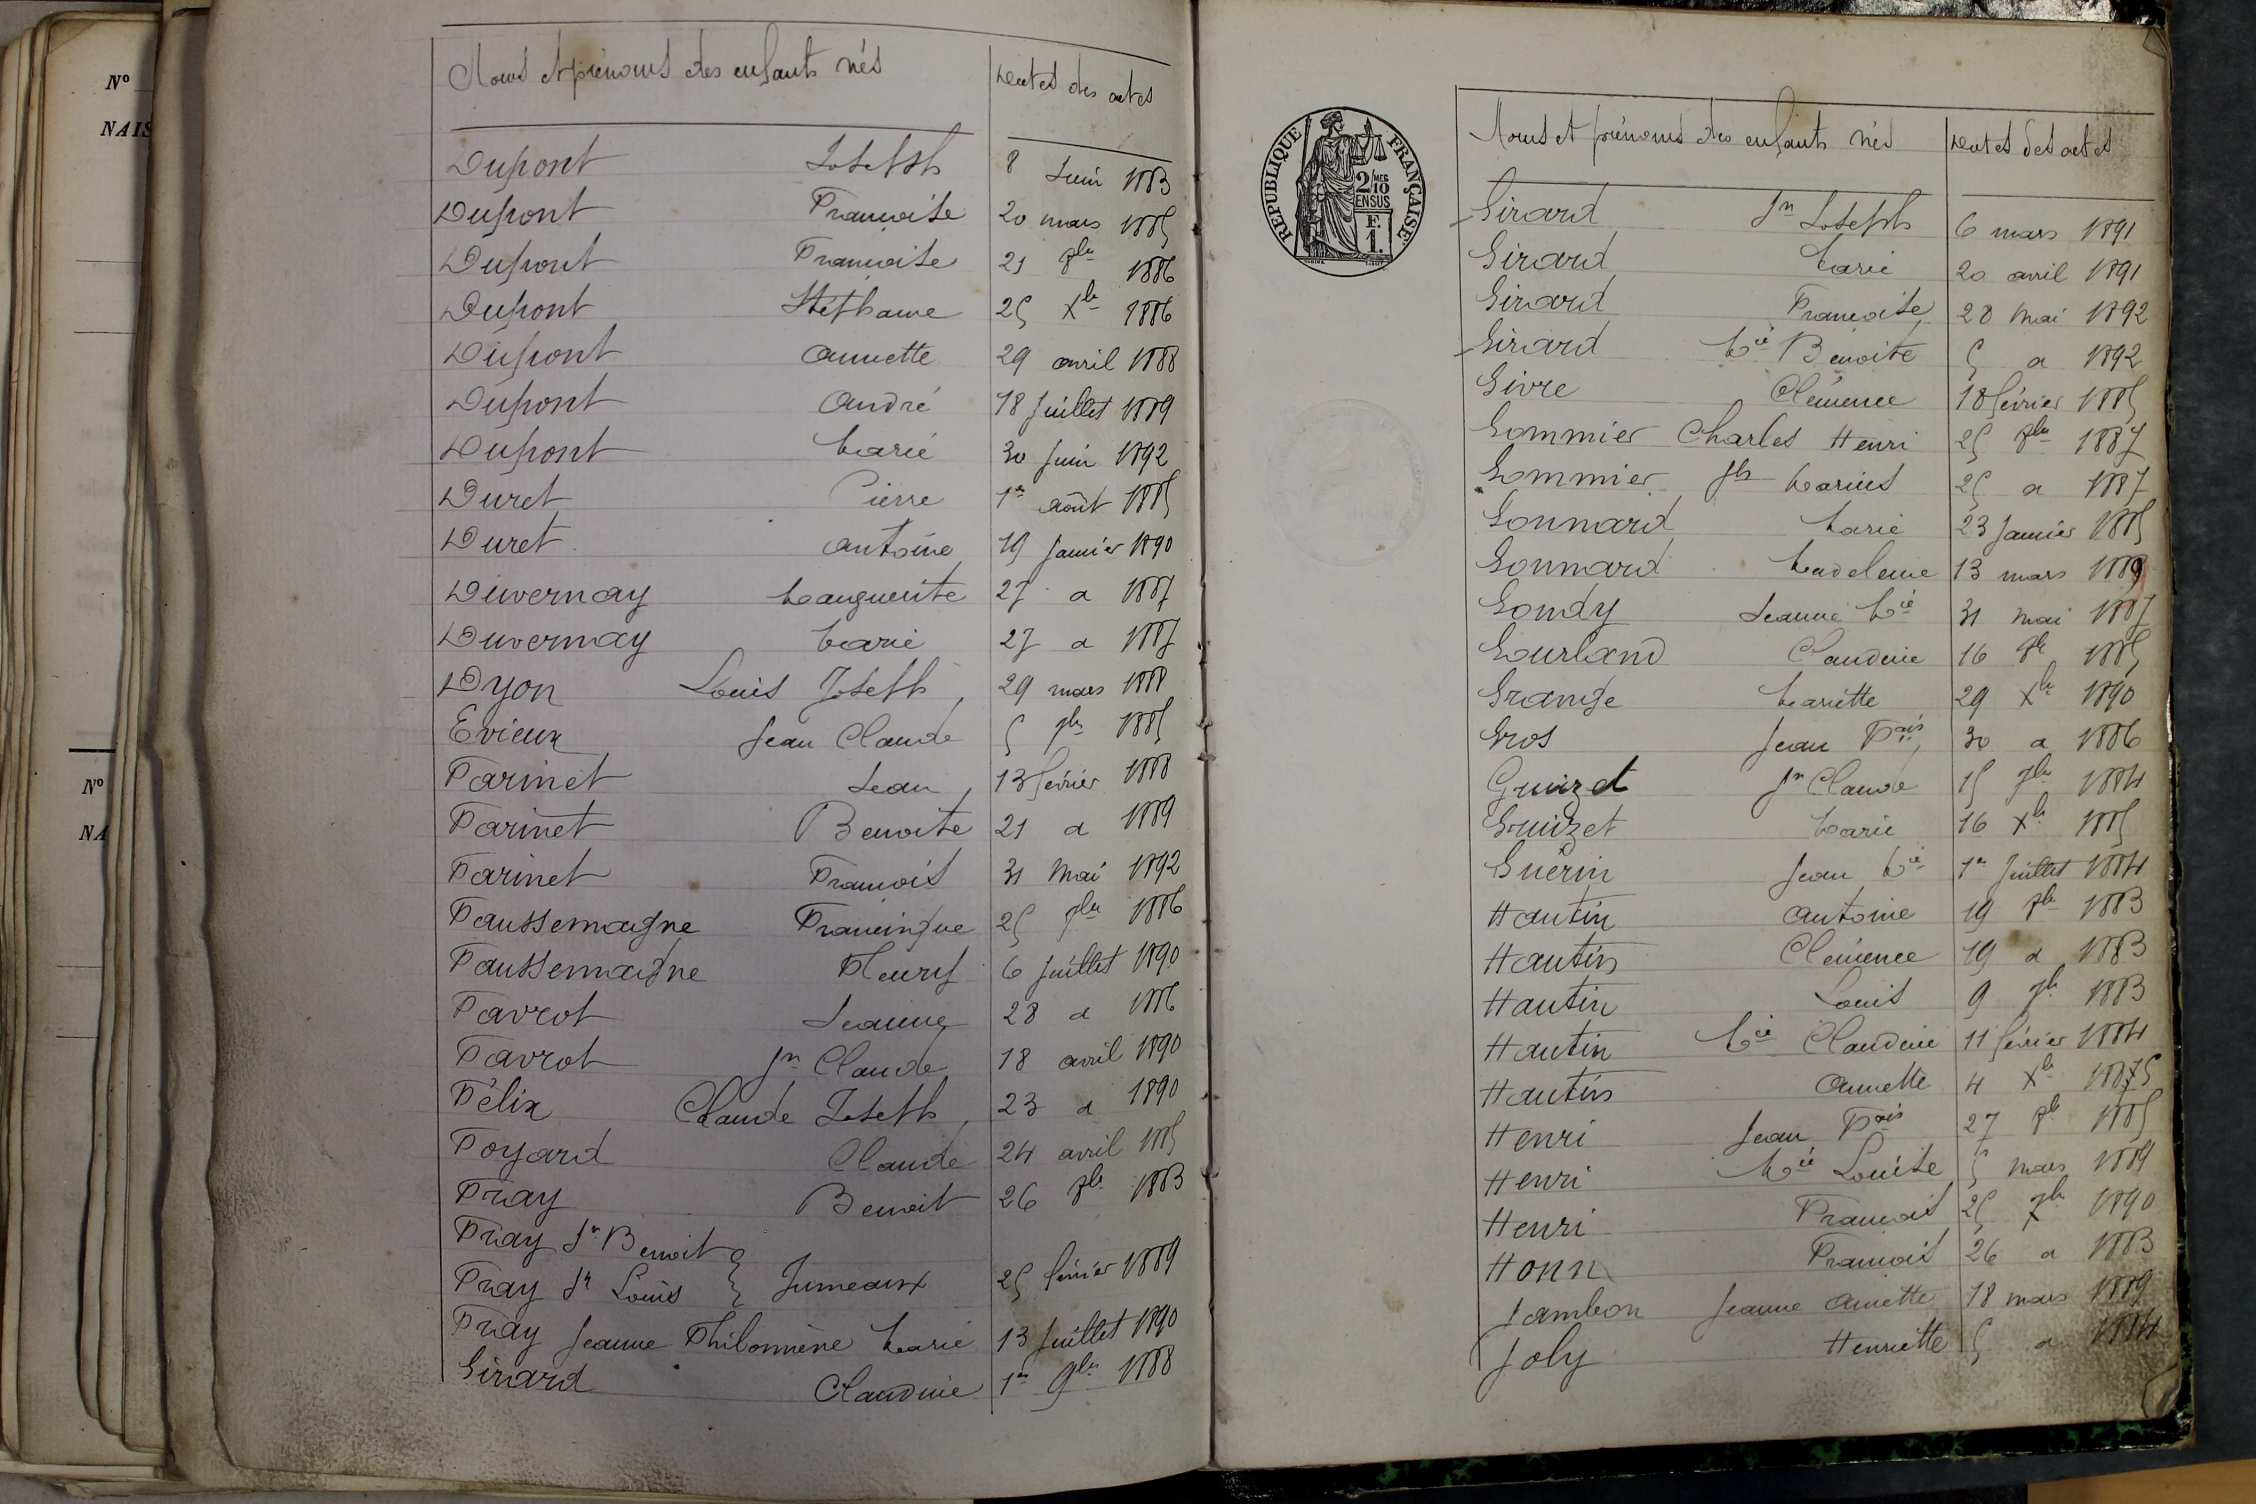 N°
NAIS
N°
NA
Noms et prénoms des enfants nés Dates des actes
Dupont Joseph 8 Juin 1883
Dupont Françoise 20 mars 1885
Dupont Françoise 21 8bre 1886
Dupont Stéphanie 25 Xbre 1886
Dupont Annette 29 avril 1888
Dupont André 18 Juillet 1889
Dupont Marie 30 Juin 1892
Duret Pierre 1er août 1885
Duret Antoine 19 Janvier 1890
Duvernay Marguerite 27 d 1887
Duvernay Marie 27 d 1887
Dyon Louis Joseph 29 mars 1888
Evieux Jean Claude 5 7bre 1885
Farinet Jean 13 février 1888
Farinet Benoite 21 d 1889
Farinet François 31 Mai 1892
Faussemagne Francinque 25 7bre 1886
Faussemagne Fleury 6 Juillet 1890
Favrot Jeanne 28 d 1886
Favrot Jn Claude 18 avril 1890
Félix Claude Joseph 23 d 1890
Foyard Claude 24 avril 1885
Fray Benoit 26 8bre 1883
Fray Jn Benoit
Fray Jn Louis } Jumeaux 25 février 1889
Fray Jeanne Philomène Marie 13 Juillet 1890
Girard Claudine 1er 9bre 1888
REPUBLIQUE FRANÇAISE
2 MES
10
EN SUS
F.
1.
Noms et prénoms des enfants nés Dates des actes
Girard Jn Joseph 6 mars 1891
Girard Marie 20 avril 1891
Girard Françoise 28 Mai 1892
Girard Mie Benoite 5 d 1892
Givre Clémence 18 février 1885
Gommier Charles Henri 25 8bre 1887
Gommier Jh Marius 25 d 1887
Gonnard Marie 23 Janvier 1885
Gonnard Madeleine 13 mars 1889
Gondy Jeanne Mie 31 Mai 1887
Gourland Claudine 16 8bre 1885
Grange Mariette 29 Xbre 1890
Gros Jean Fois 30 d 1886
Guizet Jn Claude 15 7bre 1884
Guizet Marie 16 Xbre 1885
Guérin Jean Mie 1er Juillet 1884
Hautin Antoine 19 8bre 1883
Hautin Clémence 19 d 1883
Hautin Louis 9 9bre 1883
Hautin Mie Claudine 11 février 1884
Hautin Annette 4 Xbre 1885
Henri Jean Fois 27 8bre 1885
Henri Mie Louise 5 Mars 1889
Henri François 25 1890
Honn François 26 d 1883
Jambon Jeanne Annette 18 mars 1889
Joly Henriette 5 d 1884